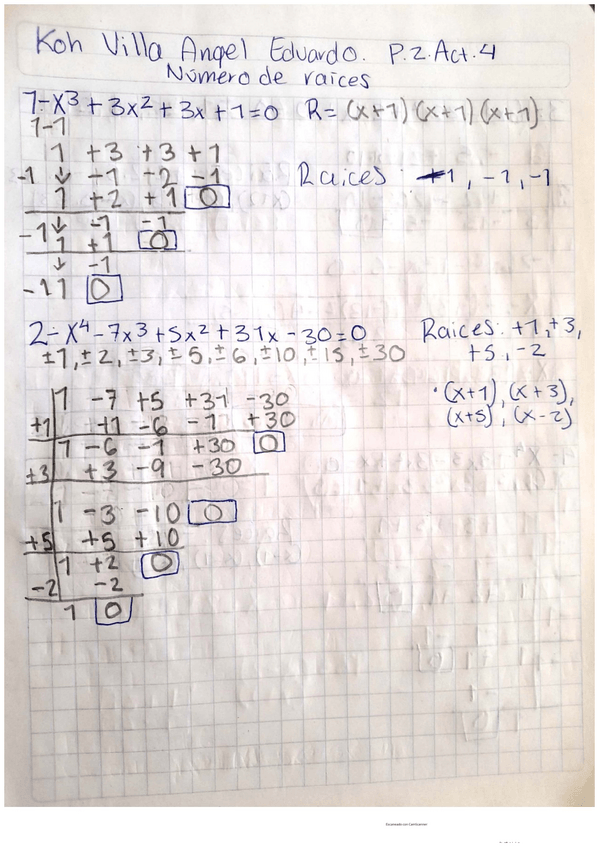 Koh Villa Angel Eduardo. P.2.Act.4
Número de raíces
1-x³ + 3x² + 3x + 1=0 R= (x+1) (x+1) (x+1)
1-1
1 +3 +3 +1
-1 ↓ -1 -2 -1 Raices: +1, -1, -1
1 +2 +1 0
-1 ↓ -1 -1
1 +1 0
↓ -1
-1 1 0
2-x⁴-7x³+5x²+31x-30=0 Raices: +1,+3,
±1,±2,±3,±5,±6,±10,±15,±30 +5,-2
1 -7 +5 +31 -30 ·(x+1), (x+3),
+1 +1 -6 -1 +30 (x+5), (x-2)
1 -6 -1 +30 0
+3 +3 -9 -30
1 -3 -10 0
+5 +5 +10
1 +2 0
-2 -2
1 0
Escaneado con CamScanner